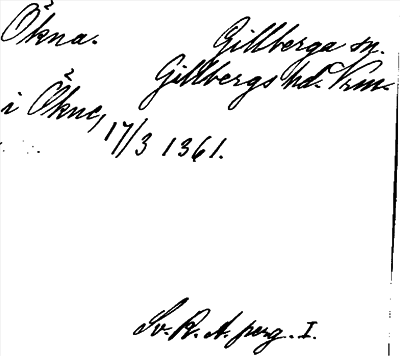 Ökna. Gillberga sn.
Gillbergs hd. Vrm.
i Ökne, 17/3 1361.
Sv. R. A. perg. I.